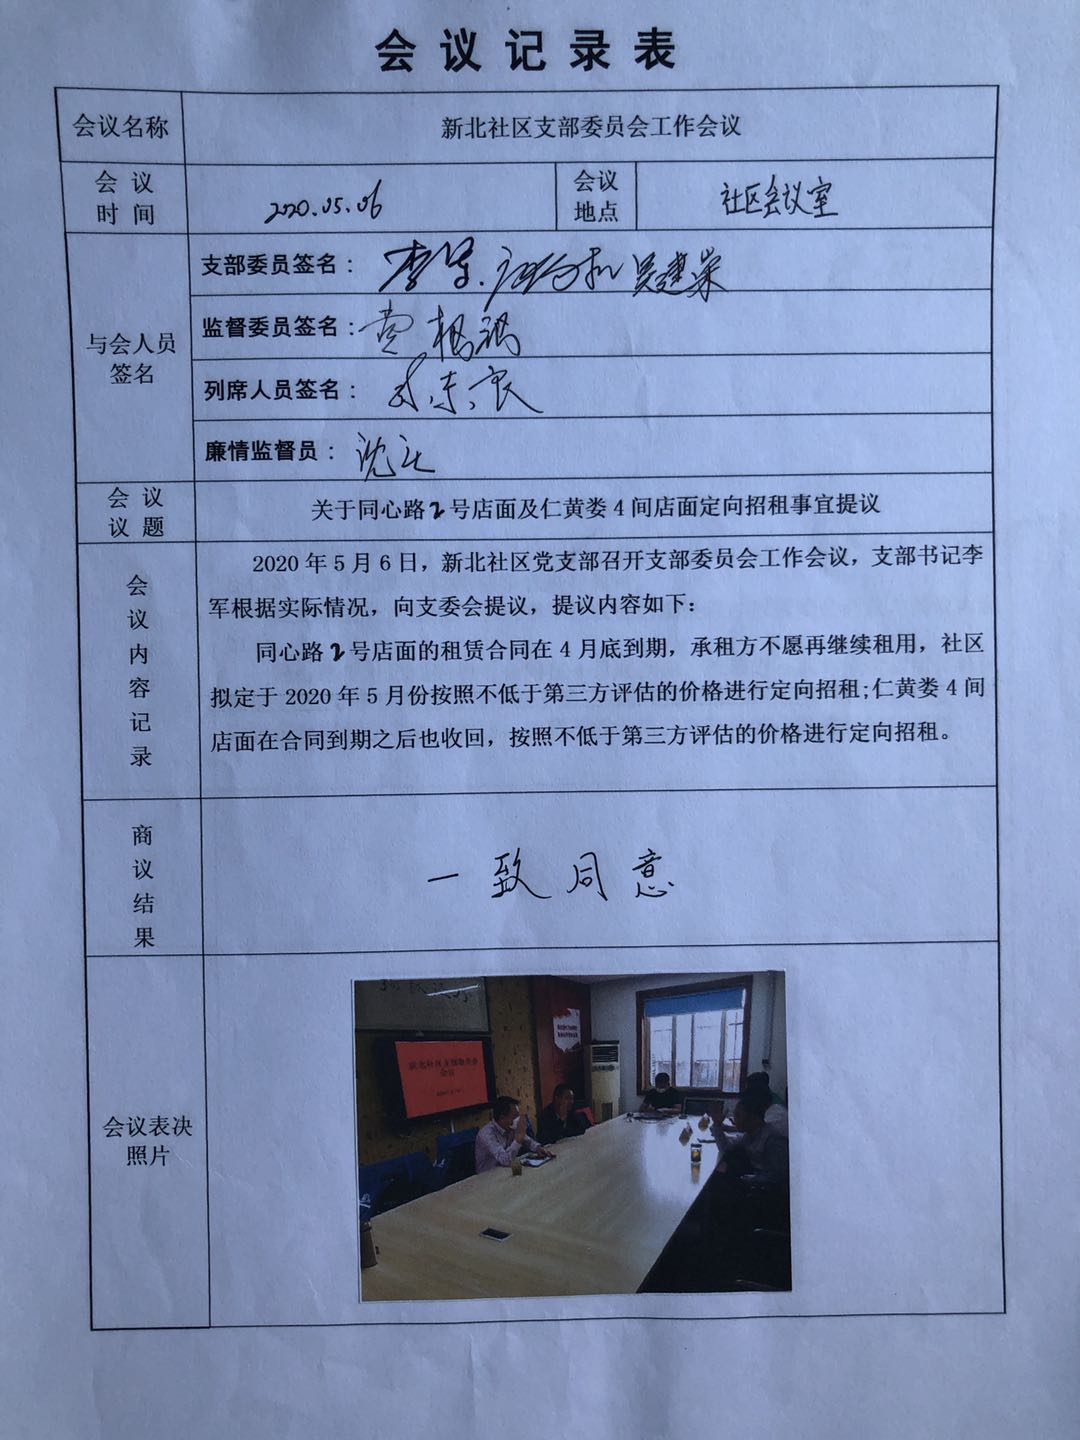 会议记录表
会议名称
新北社区支部委员会工作会议
会 议
时 间
2020.05.06
会议
地点
社区会议室
与会人员
签名
支部委员签名：李军、 吴建荣
监督委员签名：
列席人员签名：
廉情监督员：沈
会 议
议 题
关于同心路2号店面及仁黄娄4间店面定向招租事宜提议
会
议
内
容
记
录
2020年5月6日，新北社区党支部召开支部委员会工作会议，支部书记李
军根据实际情况，向支委会提议，提议内容如下：
同心路2号店面的租赁合同在4月底到期，承租方不愿再继续租用，社区
拟定于2020年5月份按照不低于第三方评估的价格进行定向招租;仁黄娄4间
店面在合同到期之后也收回，按照不低于第三方评估的价格进行定向招租。
商
议
结
果
一致同意
会议表决
照片
新北社区支部委员会
会议